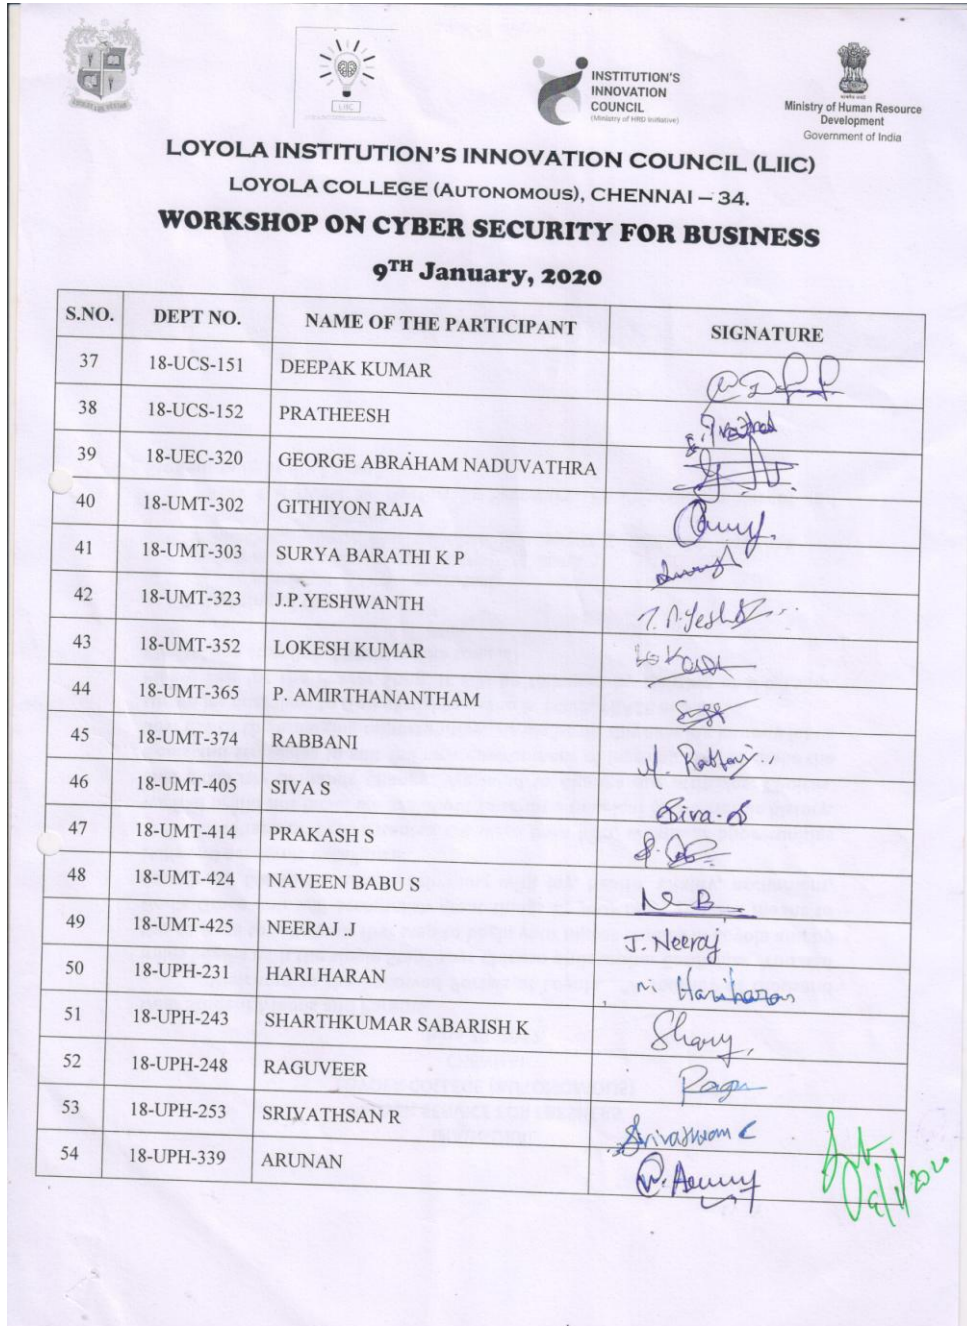 LIIC
INSTITUTION'S
INNOVATION
COUNCIL
(Ministry of HRD Initiative)
Ministry of Human Resource
Development
Government of India
LOYOLA INSTITUTION'S INNOVATION COUNCIL (LIIC)
LOYOLA COLLEGE (AUTONOMOUS), CHENNAI – 34.
WORKSHOP ON CYBER SECURITY FOR BUSINESS
9TH January, 2020
S.NO. DEPT NO. NAME OF THE PARTICIPANT SIGNATURE
37 18-UCS-151 DEEPAK KUMAR
38 18-UCS-152 PRATHEESH
39 18-UEC-320 GEORGE ABRAHAM NADUVATHRA
40 18-UMT-302 GITHIYON RAJA
41 18-UMT-303 SURYA BARATHI K P
42 18-UMT-323 J.P.YESHWANTH
43 18-UMT-352 LOKESH KUMAR
44 18-UMT-365 P. AMIRTHANANTHAM
45 18-UMT-374 RABBANI
46 18-UMT-405 SIVA S Siva.
47 18-UMT-414 PRAKASH S
48 18-UMT-424 NAVEEN BABU S
49 18-UMT-425 NEERAJ .J J. Neeraj
50 18-UPH-231 HARI HARAN Hariharan
51 18-UPH-243 SHARTHKUMAR SABARISH K
52 18-UPH-248 RAGUVEER
53 18-UPH-253 SRIVATHSAN R
54 18-UPH-339 ARUNAN